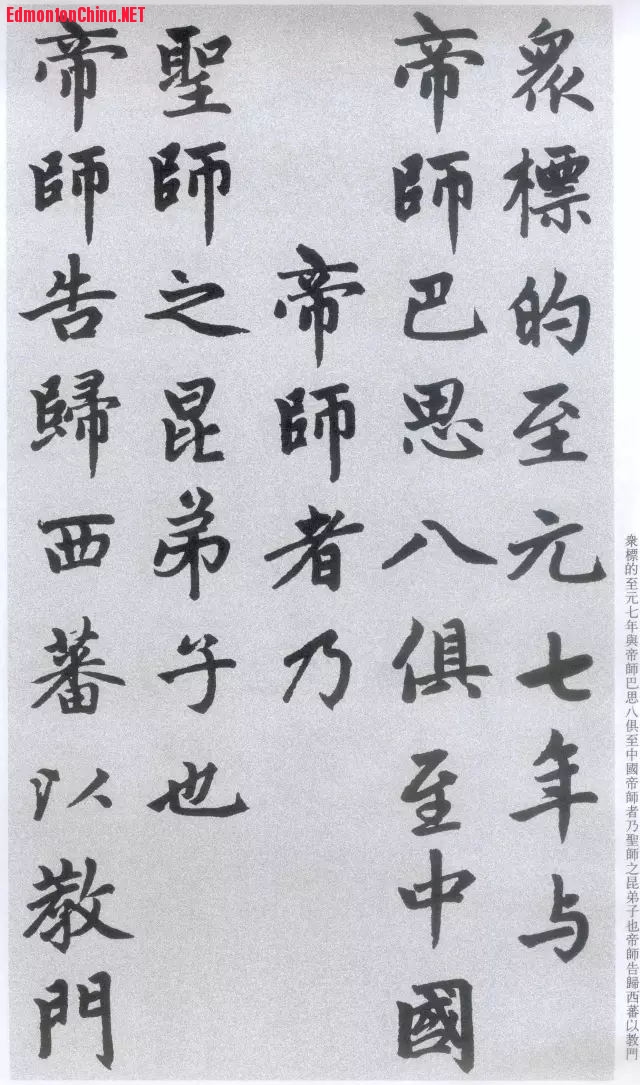 EdmontonChina.NET
衆標的至元七年与
帝師巴思八俱至中國
帝師者乃
聖師之昆弟子也
帝師告歸西蕃以教門
衆標的至元七年與帝師巴思八俱至中國帝師者乃聖師之昆弟子也帝師告歸西蕃以教門